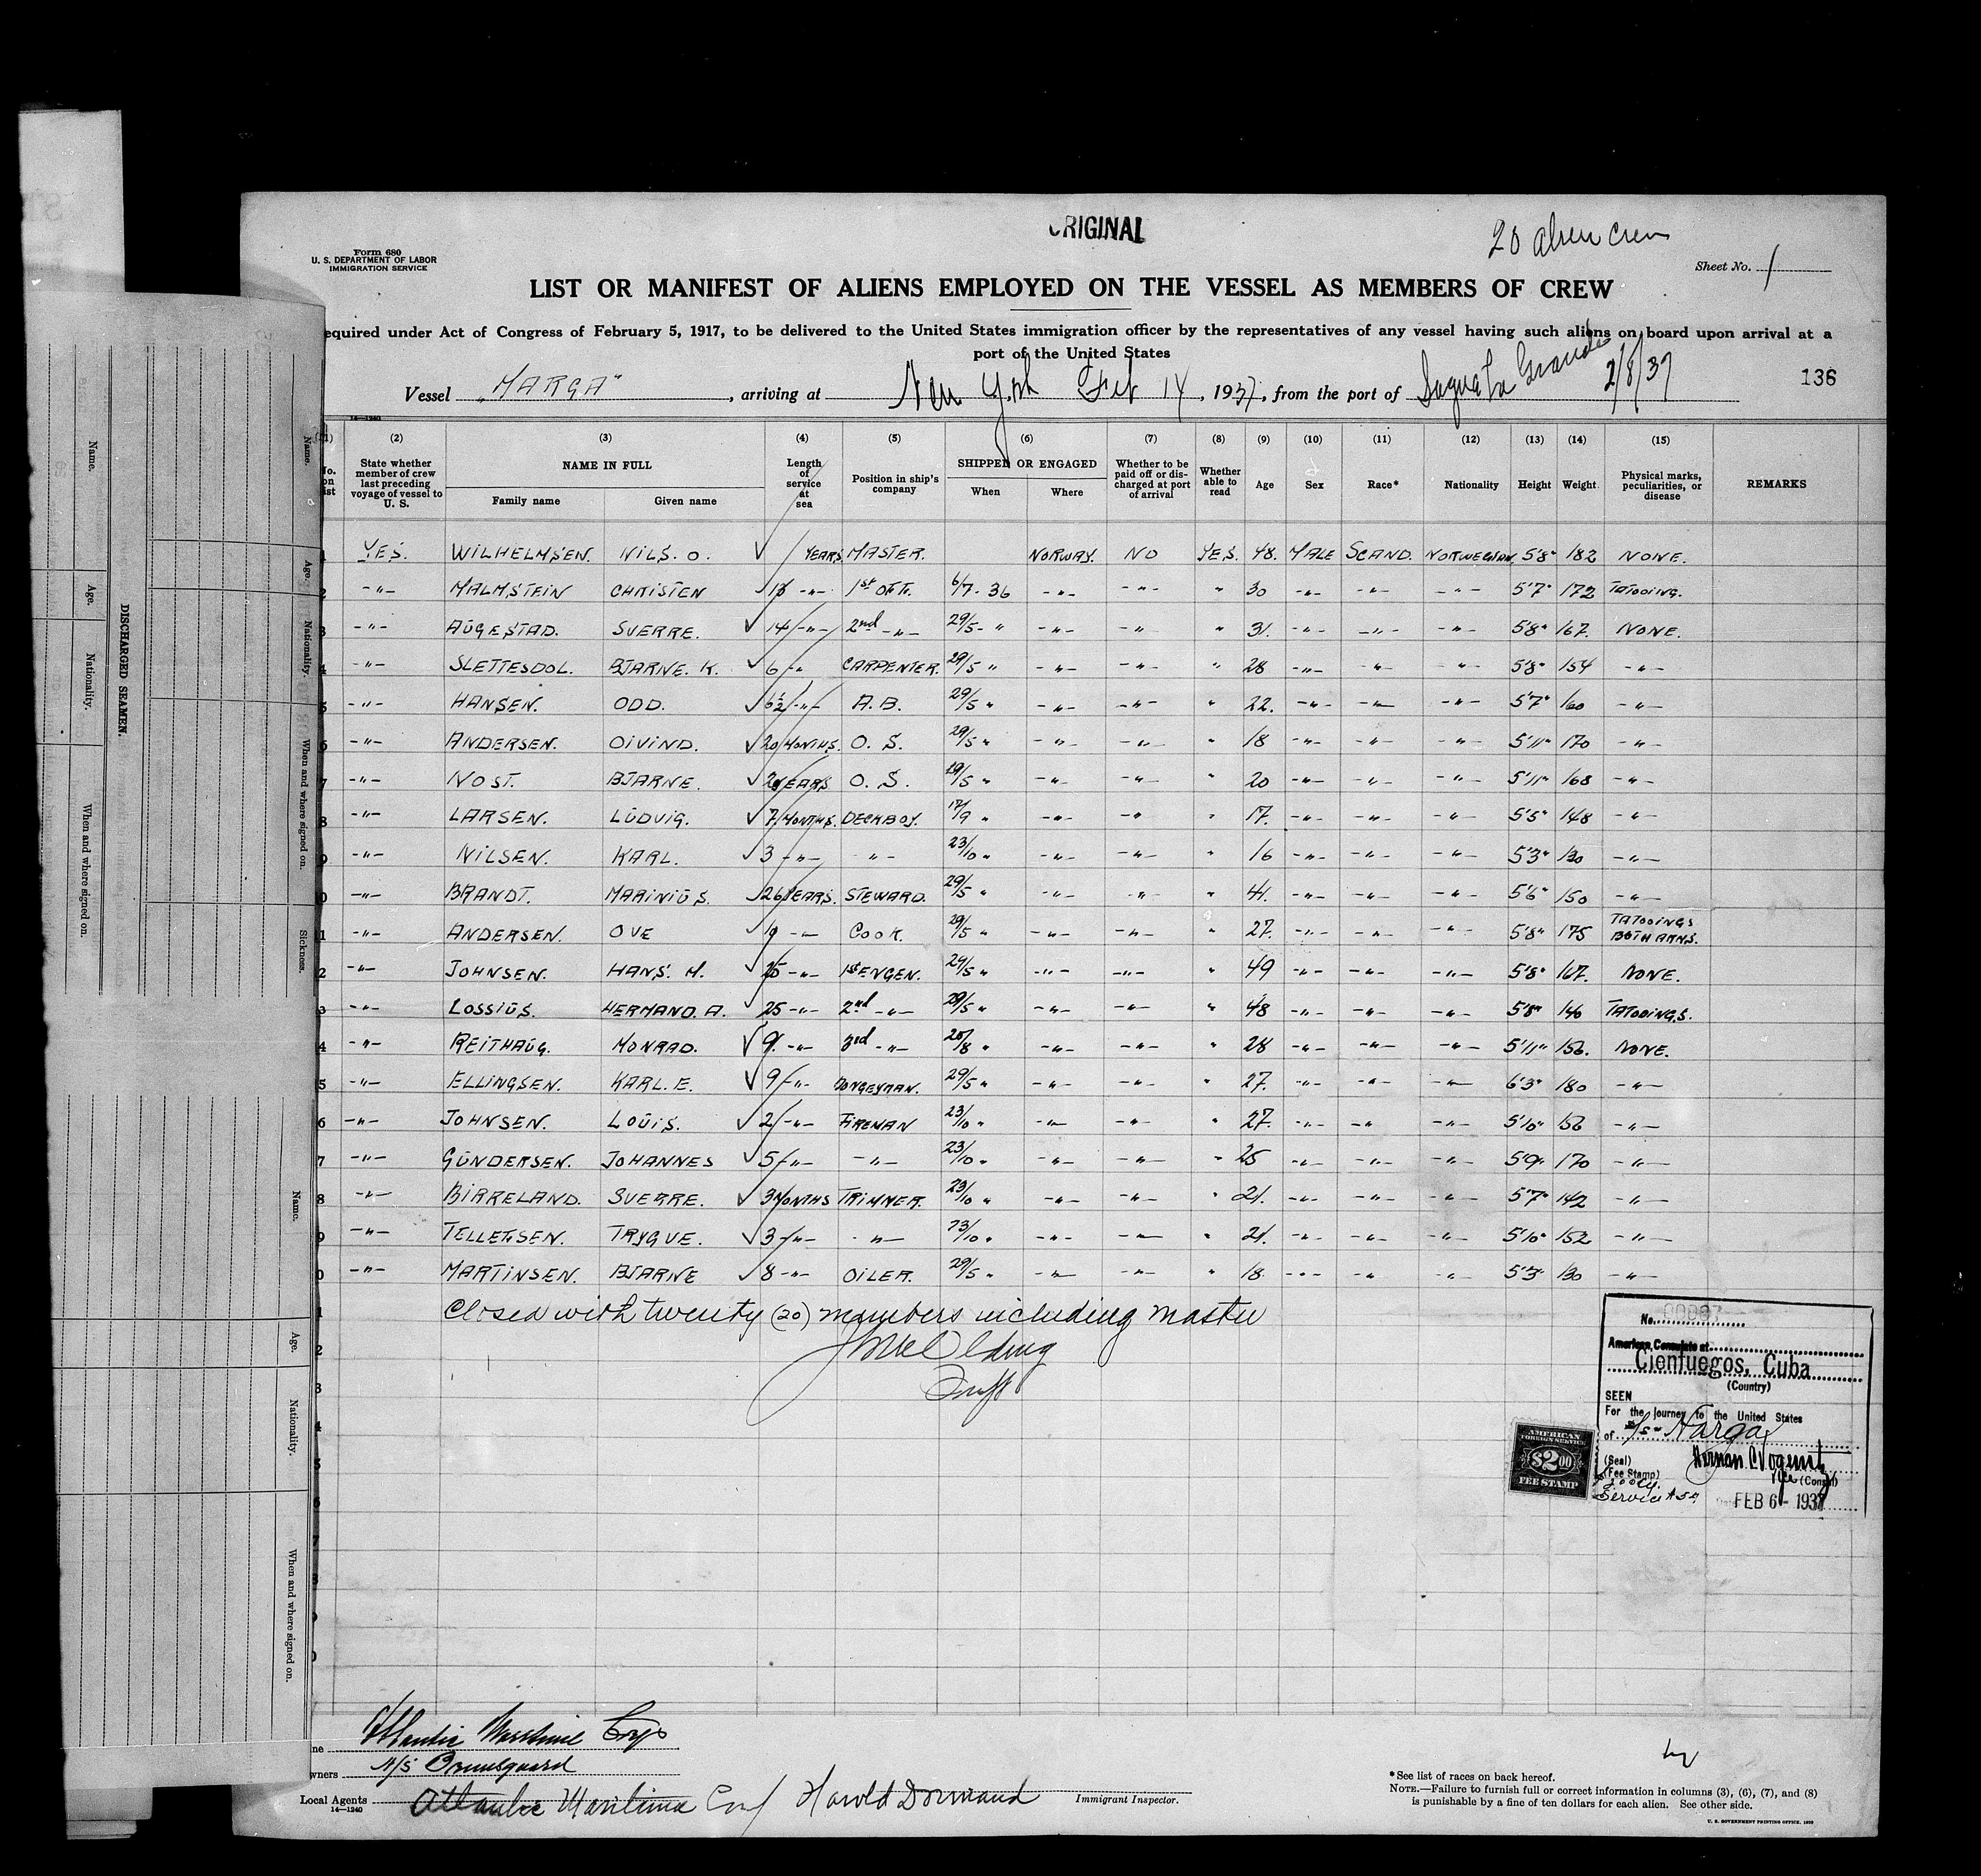 ORIGINAL
20 alien crew
Form 680
U. S. DEPARTMENT OF LABOR
IMMIGRATION SERVICE
Sheet No. 1
LIST OR MANIFEST OF ALIENS EMPLOYED ON THE VESSEL AS MEMBERS OF CREW
equired under Act of Congress of February 5, 1917, to be delivered to the United States immigration officer by the representatives of any vessel having such aliens on board upon arrival at a
port of the United States
Vessel "MARGA", arriving at New York Feb 14, 1937, from the port of Sagua La Grande 2/8/37
136
14—1240
(1) (2) (3) (4) (5) (6) (7) (8) (9) (10) (11) (12) (13) (14) (15)
No. on list State whether member of crew last preceding voyage of vessel to U. S. NAME IN FULL Family name Given name Length of service at sea Position in ship's company SHIPPED OR ENGAGED When Where Whether to be paid off or discharged at port of arrival Whether able to read Age Sex Race* Nationality Height Weight Physical marks, peculiarities, or disease REMARKS
YES. WILHELMSEN. NILS. O. YEARS MASTER. NORWAY. NO YES. 48. MALE SCAND. NORWEGIAN 5'8" 182 NONE.
2 -"- MALMSTEIN CHRISTEN 13 -"- 1st OFF. 6/7. 36 -"- -"- " 30 -"- -"- -"- 5'7" 172 TATOOING.
3 -"- AUGESTAD. SVERRE. 14 -"- 2nd -"- 29/5 " -"- -"- " 31. -"- -"- -"- 5'8" 167. NONE.
4 -"- SLETTESDOL. BJARNE. K. 6 -"- CARPENTER. 29/5 " -"- -"- " 28 -"- -"- -"- 5'8" 154 -"-
5 -"- HANSEN. ODD. 6½ -"- A.B. 29/5 " -"- -"- " 22. -"- -"- -"- 5'7" 160 -"-
6 -"- ANDERSEN. OIVIND. 20 MONTHS. O. S. 29/5 " -"- -"- " 18 -"- -"- -"- 5'11" 170 -"-
7 -"- NOST. BJARNE. 2 YEARS O. S. 29/5 " -"- -"- " 20 -"- -"- -"- 5'11" 168 -"-
8 -"- LARSEN. LUDVIG. 7 MONTHS. DECKBOY. 17/9 " -"- -"- " 17. -"- -"- -"- 5'5" 148 -"-
9 -"- NILSEN. KARL. 3 -"- -"- 23/10 " -"- -"- " 16 -"- -"- -"- 5'3" 130 -"-
0 -"- BRANDT. MARINIUS. 26 YEARS. STEWARD. 29/5 " -"- -"- " 41. -"- -"- -"- 5'6" 150 -"-
1 -"- ANDERSEN. OVE 9 -"- COOK. 29/5 " -"- -"- " 27. -"- -"- -"- 5'8" 175 TATOOINGS BOTH ARMS.
2 -"- JOHNSEN. HANS. M. 25 -"- 1st ENGEN. 29/5 " -"- -"- " 49 -"- -"- -"- 5'8" 167. NONE.
3 -"- LOSSIUS. HERMAND. A. 25 -"- 2nd -"- 29/5 " -"- -"- " 48 -"- -"- -"- 5'8" 146 TATOOINGS.
4 -"- REITHAUG. MONRAD. 9. -"- 3rd -"- 20/8 " -"- -"- " 28 -"- -"- -"- 5'11" 156. NONE.
5 -"- ELLINGSEN. KARL. E. 9 -"- DONGEYMAN. 29/5 " -"- -"- " 27. -"- -"- -"- 6'3" 180 -"-
6 -"- JOHNSEN. LOUIS. 2 -"- FIREMAN 23/10 " -"- -"- " 27. -"- -"- -"- 5'10" 156 -"-
7 -"- GUNDERSEN. JOHANNES 5 -"- -"- 23/10 " -"- -"- " 25 -"- -"- -"- 5'9" 170 -"-
8 -"- BIRRELAND. SVERRE. 3 MONTHS TRIMMER. 23/10 " -"- -"- " 21. -"- -"- -"- 5'7" 142 -"-
9 -"- TELLEFSEN. TRYGVE. 3 -"- -"- 23/10 " -"- -"- " 21. -"- -"- -"- 5'10" 152 -"-
0 -"- MARTINSEN. BJARNE 8 -"- OILER. 29/5 " -"- -"- " 18. -"- -"- -"- 5'3" 130 -"-
Closed with twenty (20) members including master
No.
American Consulate at
Cienfuegos, Cuba
(Country)
SEEN
For the journey to the United States
of
(Seal)
(Fee Stamp)
(Consul)
Service
FEB 6 - 1937
AMERICAN
FOREIGN SERVICE
$2.00
FEE STAMP
Atlantic Maritime Corp
wners
Local Agents Atlantic Maritime Corp Harold Dormand Immigrant Inspector.
14—1240
*See list of races on back hereof.
NOTE.—Failure to furnish full or correct information in columns (3), (6), (7), and (8)
is punishable by a fine of ten dollars for each alien. See other side.
U. S. GOVERNMENT PRINTING OFFICE
DISCHARGED SEAMEN.
Name.
Age.
Nationality.
When and where signed on.
Name.
Age.
Nationality.
When and where signed on.
Sickness.
Name.
Age.
Nationality.
When and where signed on.